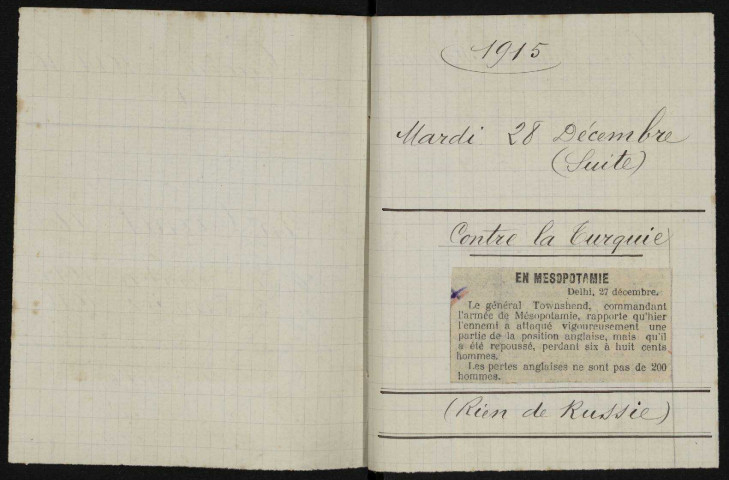 1915
Mardi 28 Décembre
(Suite)
Contre la Turquie
EN MESOPOTAMIE
Delhi, 27 décembre.
Le général Townshend, commandant
l'armée de Mésopotamie, rapporte qu'hier
l'ennemi a attaqué vigoureusement une
partie de la position anglaise, mais qu'il
a été repoussé, perdant six à huit cents
hommes.
Les pertes anglaises ne sont pas de 200
hommes.
(Rien de Russie)